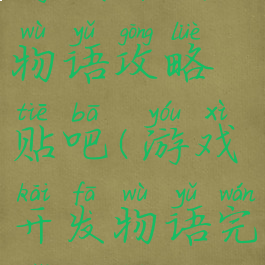 wù yǔ gōng lüè
物语攻略
tiē bā yóu xì
贴吧(游戏
kāi fā wù yǔ wán
开发物语完